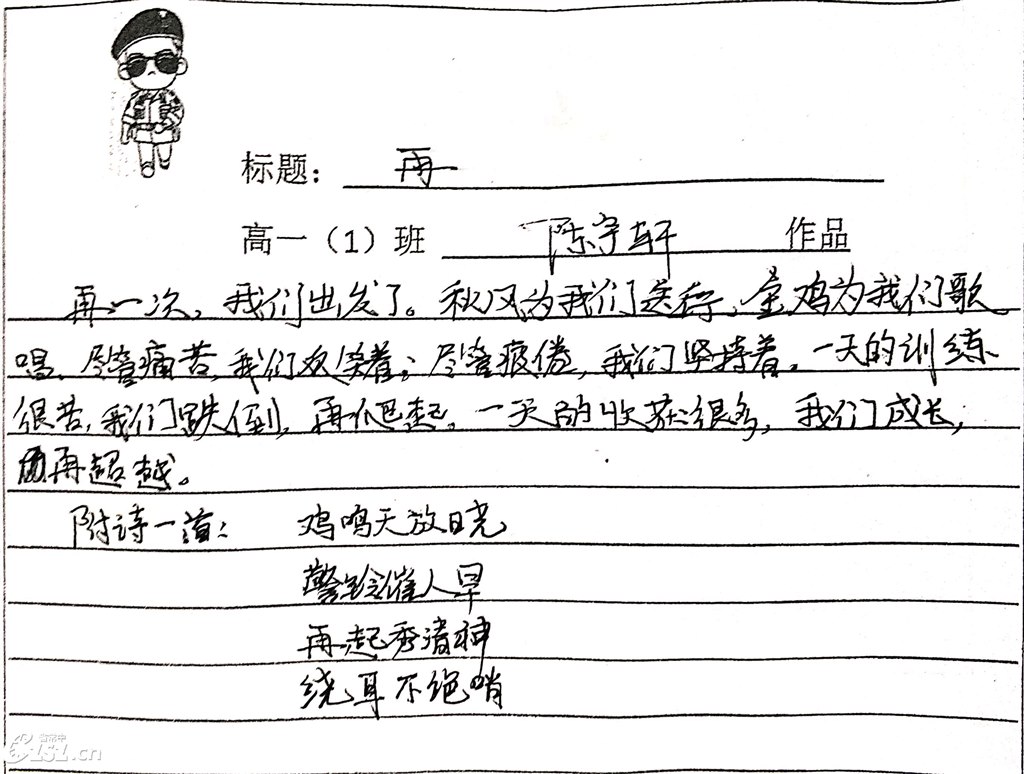 标题：再
高一（1）班 陈宇轩 作品
再一次，我们出发了。秋风为我们送行，金鸡为我们歌
唱。尽管痛苦，我们欢笑着；尽管疲倦，我们坚持着。一天的训练
很苦，我们跌倒，再爬起。一天的收获很多，我们成长，
再超越。
附诗一首： 鸡鸣天放晓
警铃催人早
再起秀清神
绕耳不绝哨
151.cn